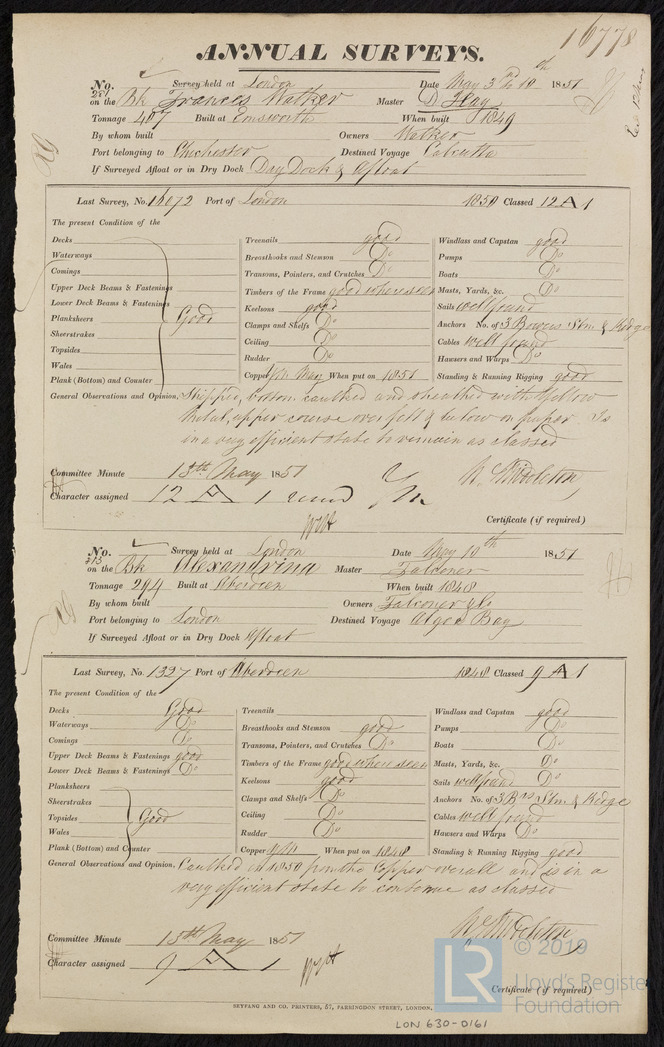 16778
ANNUAL SURVEYS.
No. Survey held at London Date May 3 to 10th 1851
on the Bk Frances Walker Master D. Hay
Tonnage 407 Built at Emsworth When built 1849
By whom built Owners Walker
Port belonging to Chichester Destined Voyage Calcutta
If Surveyed Afloat or in Dry Dock Dry Dock & Afloat
Last Survey, No. 16072 Port of London 1850 Classed 12 A 1
The present Condition of the
Decks Treenails good Windlass and Capstan good
Waterways Breasthooks and Stemson Do Pumps Do
Comings Transoms, Pointers, and Crutches Do Boats Do
Upper Deck Beams & Fastenings Timbers of the Frame good where seen Masts, Yards, &c. Do
Lower Deck Beams & Fastenings Keelsons good Sails well found
Planksheers Good Clamps and Shelfs Do Anchors No. of 3 Bowers Stm & Kedge
Sheerstrakes Ceiling Do Cables well found
Topsides Rudder Do Hawsers and Warps Do
Wales Copper Y.M. May When put on 1851 Standing & Running Rigging good
Plank (Bottom) and Counter
General Observations and Opinion, Stripped, bottom caulked and sheathed with Yellow
Metal, upper course over felt & below on paper. Is
in a very efficient state to remain as classed
Committee Minute 13th May 1851
Character assigned 12 A 1 Y.M.
Certificate (if required)
No. 415 Survey held at London Date May 10th 1851
on the Bk Alexandrina Master Falconer
Tonnage 294 Built at Aberdeen When built 1848
By whom built Owners Falconer & Co
Port belonging to London Destined Voyage Algoa Bay
If Surveyed Afloat or in Dry Dock Afloat
Last Survey, No. 1327 Port of Aberdeen 1848 Classed 9 A 1
The present Condition of the
Decks Good Treenails Windlass and Capstan good
Waterways Do Breasthooks and Stemson good Pumps Do
Comings Do Transoms, Pointers, and Crutches Do Boats Do
Upper Deck Beams & Fastenings good Timbers of the Frame good where seen Masts, Yards, &c. Do
Lower Deck Beams & Fastenings Do Keelsons good Sails well found Do
Planksheers Clamps and Shelfs Do Anchors No. of 3 Brs Stm & Kedge
Sheerstrakes Ceiling Do Cables well found
Topsides Good Rudder Do Hawsers and Warps Do
Wales Copper When put on 1848 Standing & Running Rigging good
Plank (Bottom) and Counter
General Observations and Opinion, Caulked in 1850 from the Copper overall and is in a
very efficient state to continue as classed
Committee Minute 13th May 1851
Character assigned 9 A 1
Certificate (if required)
SEYFANG AND CO. PRINTERS, 57, FARRINGDON STREET, LONDON.
LON 630-0161
© 2019
LR
Lloyd's Register
Foundation